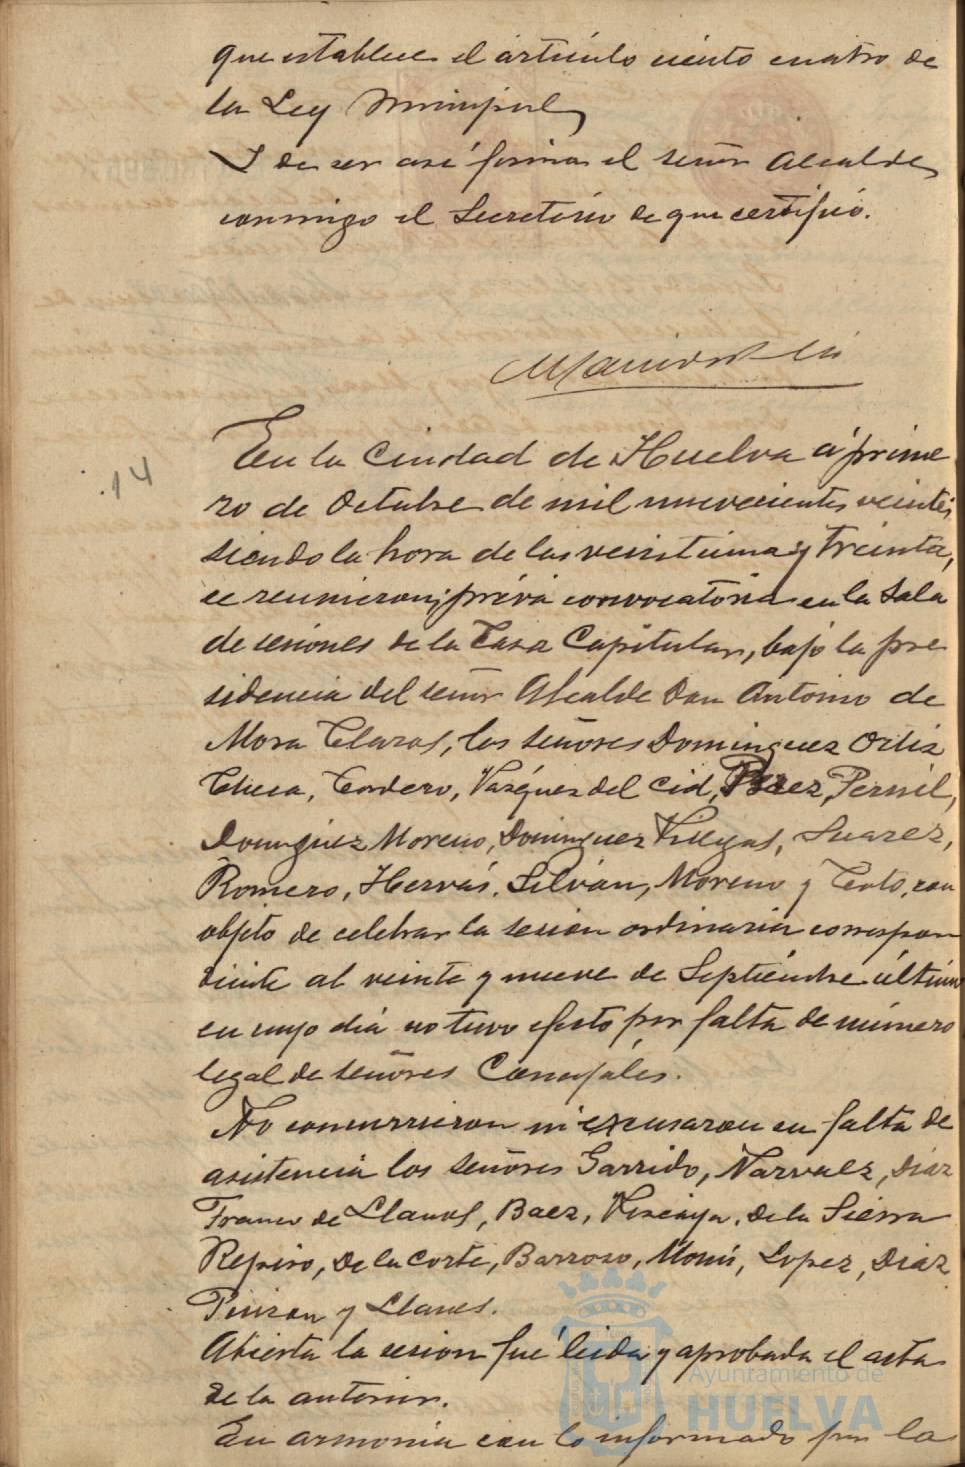 que establece el artículo ciento cuatro de
la Ley Municipal,
Y de ser así firma el señor Alcalde,
conmigo el Secretario de que certifico.
.14
En la Ciudad de Huelva á prime
ro de Octubre de mil novecientos veinte,
siendo la hora de las veintiuna y treinta,
se reunieron, prévia convocatoria en la Sala
de sesiones de la Casa Capitular, bajo la pre
sidencia del señor Alcalde Don Antonio de
Mora Claros, los señores Dominguez Ortiz
Checa, Cordero, Vázquez del Cid, Perez, Pernil,
Dominguez Moreno, Dominguez Villegas, Suarez,
Romero, Hervás, Silván, Moreno y Coto, con
objeto de celebrar la sesion ordinaria correspon
diente al veinte y nueve de Septiembre último
en cuyo dia no tuvo efecto por falta de número
legal de señores Concejales.
No concurrieron ni excusaron su falta de
asistencia los señores Garrido, Narvaez, Diaz
Franco de Llanos, Baez, Vizcaya, De la Sierra
Repiso, De la Corte, Barroso, Monis, Lopez, Diaz
Pinzon y Llanes.
Abierta la sesion fué leida y aprobada el acta
de la anterior.
En armonia con lo informado por la
Ayuntamiento de
HUELVA